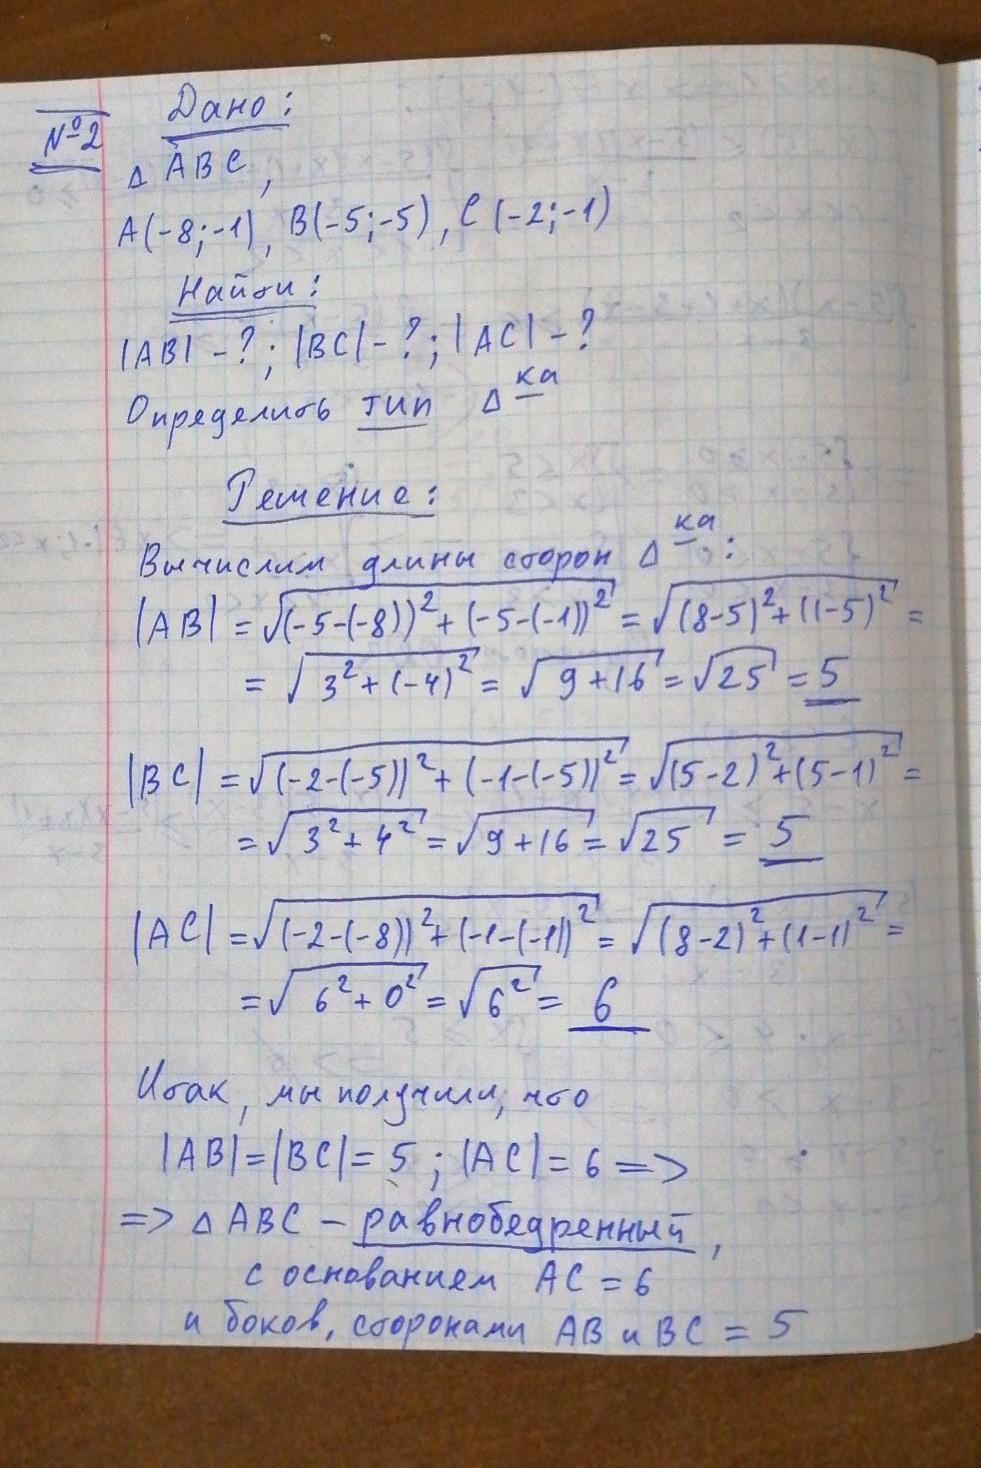 №2 Дано:
Δ ABC,
A(-8;-1), B(-5;-5), C(-2;-1)
Найти:
|AB| - ?; |BC| - ?; |AC| - ?
Определить тип Δ ка
Решение:
Вычислим длины сторон Δ ка:
|AB| = √((-5-(-8))² + (-5-(-1))²) = √((8-5)² + (1-5)²) =
= √(3² + (-4)²) = √(9+16) = √25 = 5
|BC| = √((-2-(-5))² + (-1-(-5))²) = √((5-2)² + (5-1)²) =
= √(3² + 4²) = √(9+16) = √25 = 5
|AC| = √((-2-(-8))² + (-1-(-1))²) = √((8-2)² + (1-1)²) =
= √(6² + 0²) = √(6²) = 6
Итак, мы получили, что
|AB| = |BC| = 5; |AC| = 6 =>
=> Δ ABC - равнобедренный,
с основанием AC = 6
и боков. сторонами AB и BC = 5